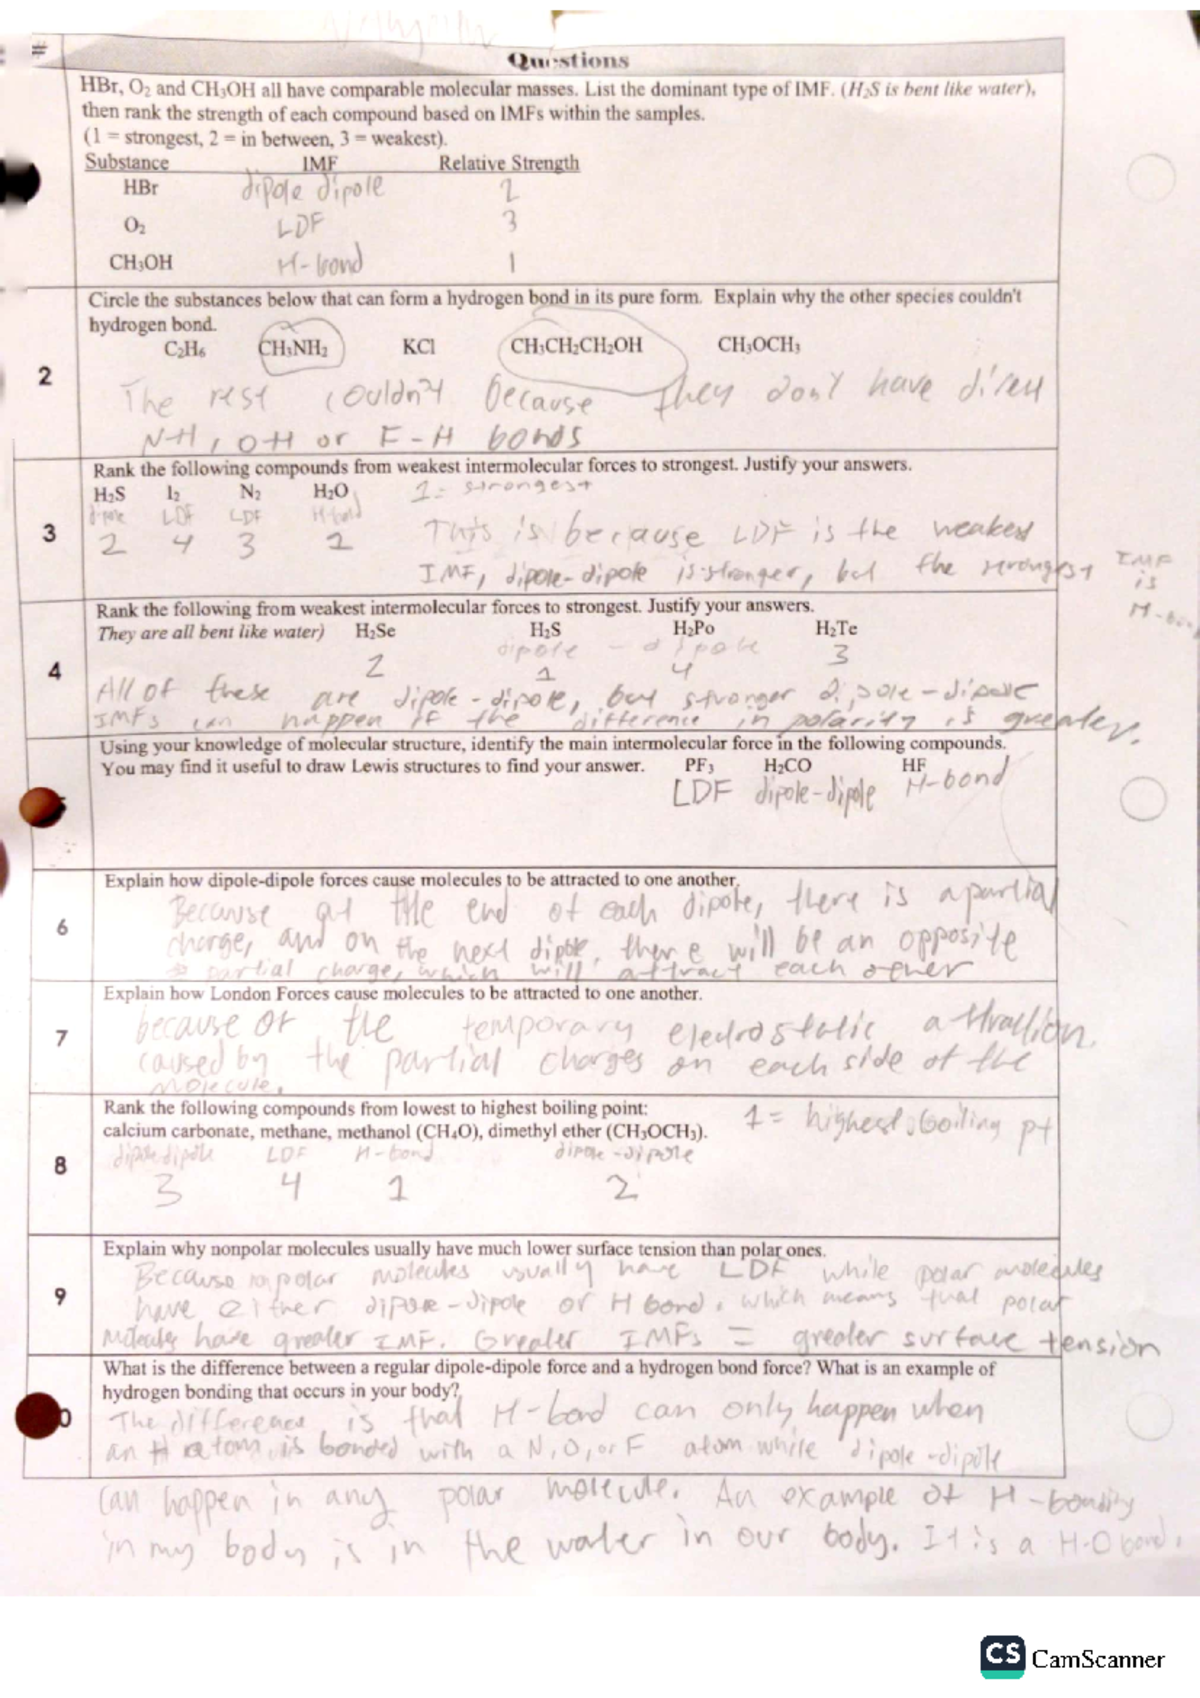 #
Questions
HBr, O₂ and CH₃OH all have comparable molecular masses. List the dominant type of IMF. (H₂S is bent like water),
then rank the strength of each compound based on IMFs within the samples.
(1 = strongest, 2 = in between, 3 = weakest).
Substance IMF Relative Strength
HBr dipole dipole 2
O₂ LDF 3
CH₃OH H-bond 1
Circle the substances below that can form a hydrogen bond in its pure form. Explain why the other species couldn't
hydrogen bond.
C₂H₆ CH₃NH₂ KCl CH₃CH₂CH₂OH CH₃OCH₃
2
The rest couldn't because they don't have direct
N-H, O-H or F-H bonds
Rank the following compounds from weakest intermolecular forces to strongest. Justify your answers.
H₂S I₂ N₂ H₂O 1= strongest
dipole LDF LDF H-bond
3
2 4 3 1
This is because LDF is the weakest
IMF, dipole-dipole is stronger, but the strongest IMF
is
H-bond
Rank the following from weakest intermolecular forces to strongest. Justify your answers.
They are all bent like water) H₂Se H₂S H₂Po H₂Te
dipole - dipole
4
2 1 4 3
All of these are dipole-dipole, but stronger dipole-dipole
IMFs can happen if the difference in polarity is greater.
Using your knowledge of molecular structure, identify the main intermolecular force in the following compounds.
You may find it useful to draw Lewis structures to find your answer. PF₃ H₂CO HF
LDF dipole-dipole H-bond
Explain how dipole-dipole forces cause molecules to be attracted to one another.
6
Because at the end of each dipole, there is a partial
charge, and on the next dipole, there will be an opposite
partial charge, which will attract each other
Explain how London Forces cause molecules to be attracted to one another.
7
because of the temporary electrostatic attraction
caused by the partial charges on each side of the
molecule.
Rank the following compounds from lowest to highest boiling point: 1= highest boiling pt
calcium carbonate, methane, methanol (CH₄O), dimethyl ether (CH₃OCH₃).
dipole dipole LDF H-bond dipole-dipole
8
3 4 1 2
Explain why nonpolar molecules usually have much lower surface tension than polar ones.
9
Because nonpolar molecules usually have LDF while polar molecules
have either dipole-dipole or H bond, which means that polar
molecules have greater IMF. Greater IMFs = greater surface tension
What is the difference between a regular dipole-dipole force and a hydrogen bond force? What is an example of
hydrogen bonding that occurs in your body?
0
The difference is that H-bond can only happen when
an H atom is bonded with a N, O, or F atom while dipole-dipole
can happen in any polar molecule. An example of H-bonding
in my body is in the water in our body. It is a H-O bond.
CS CamScanner